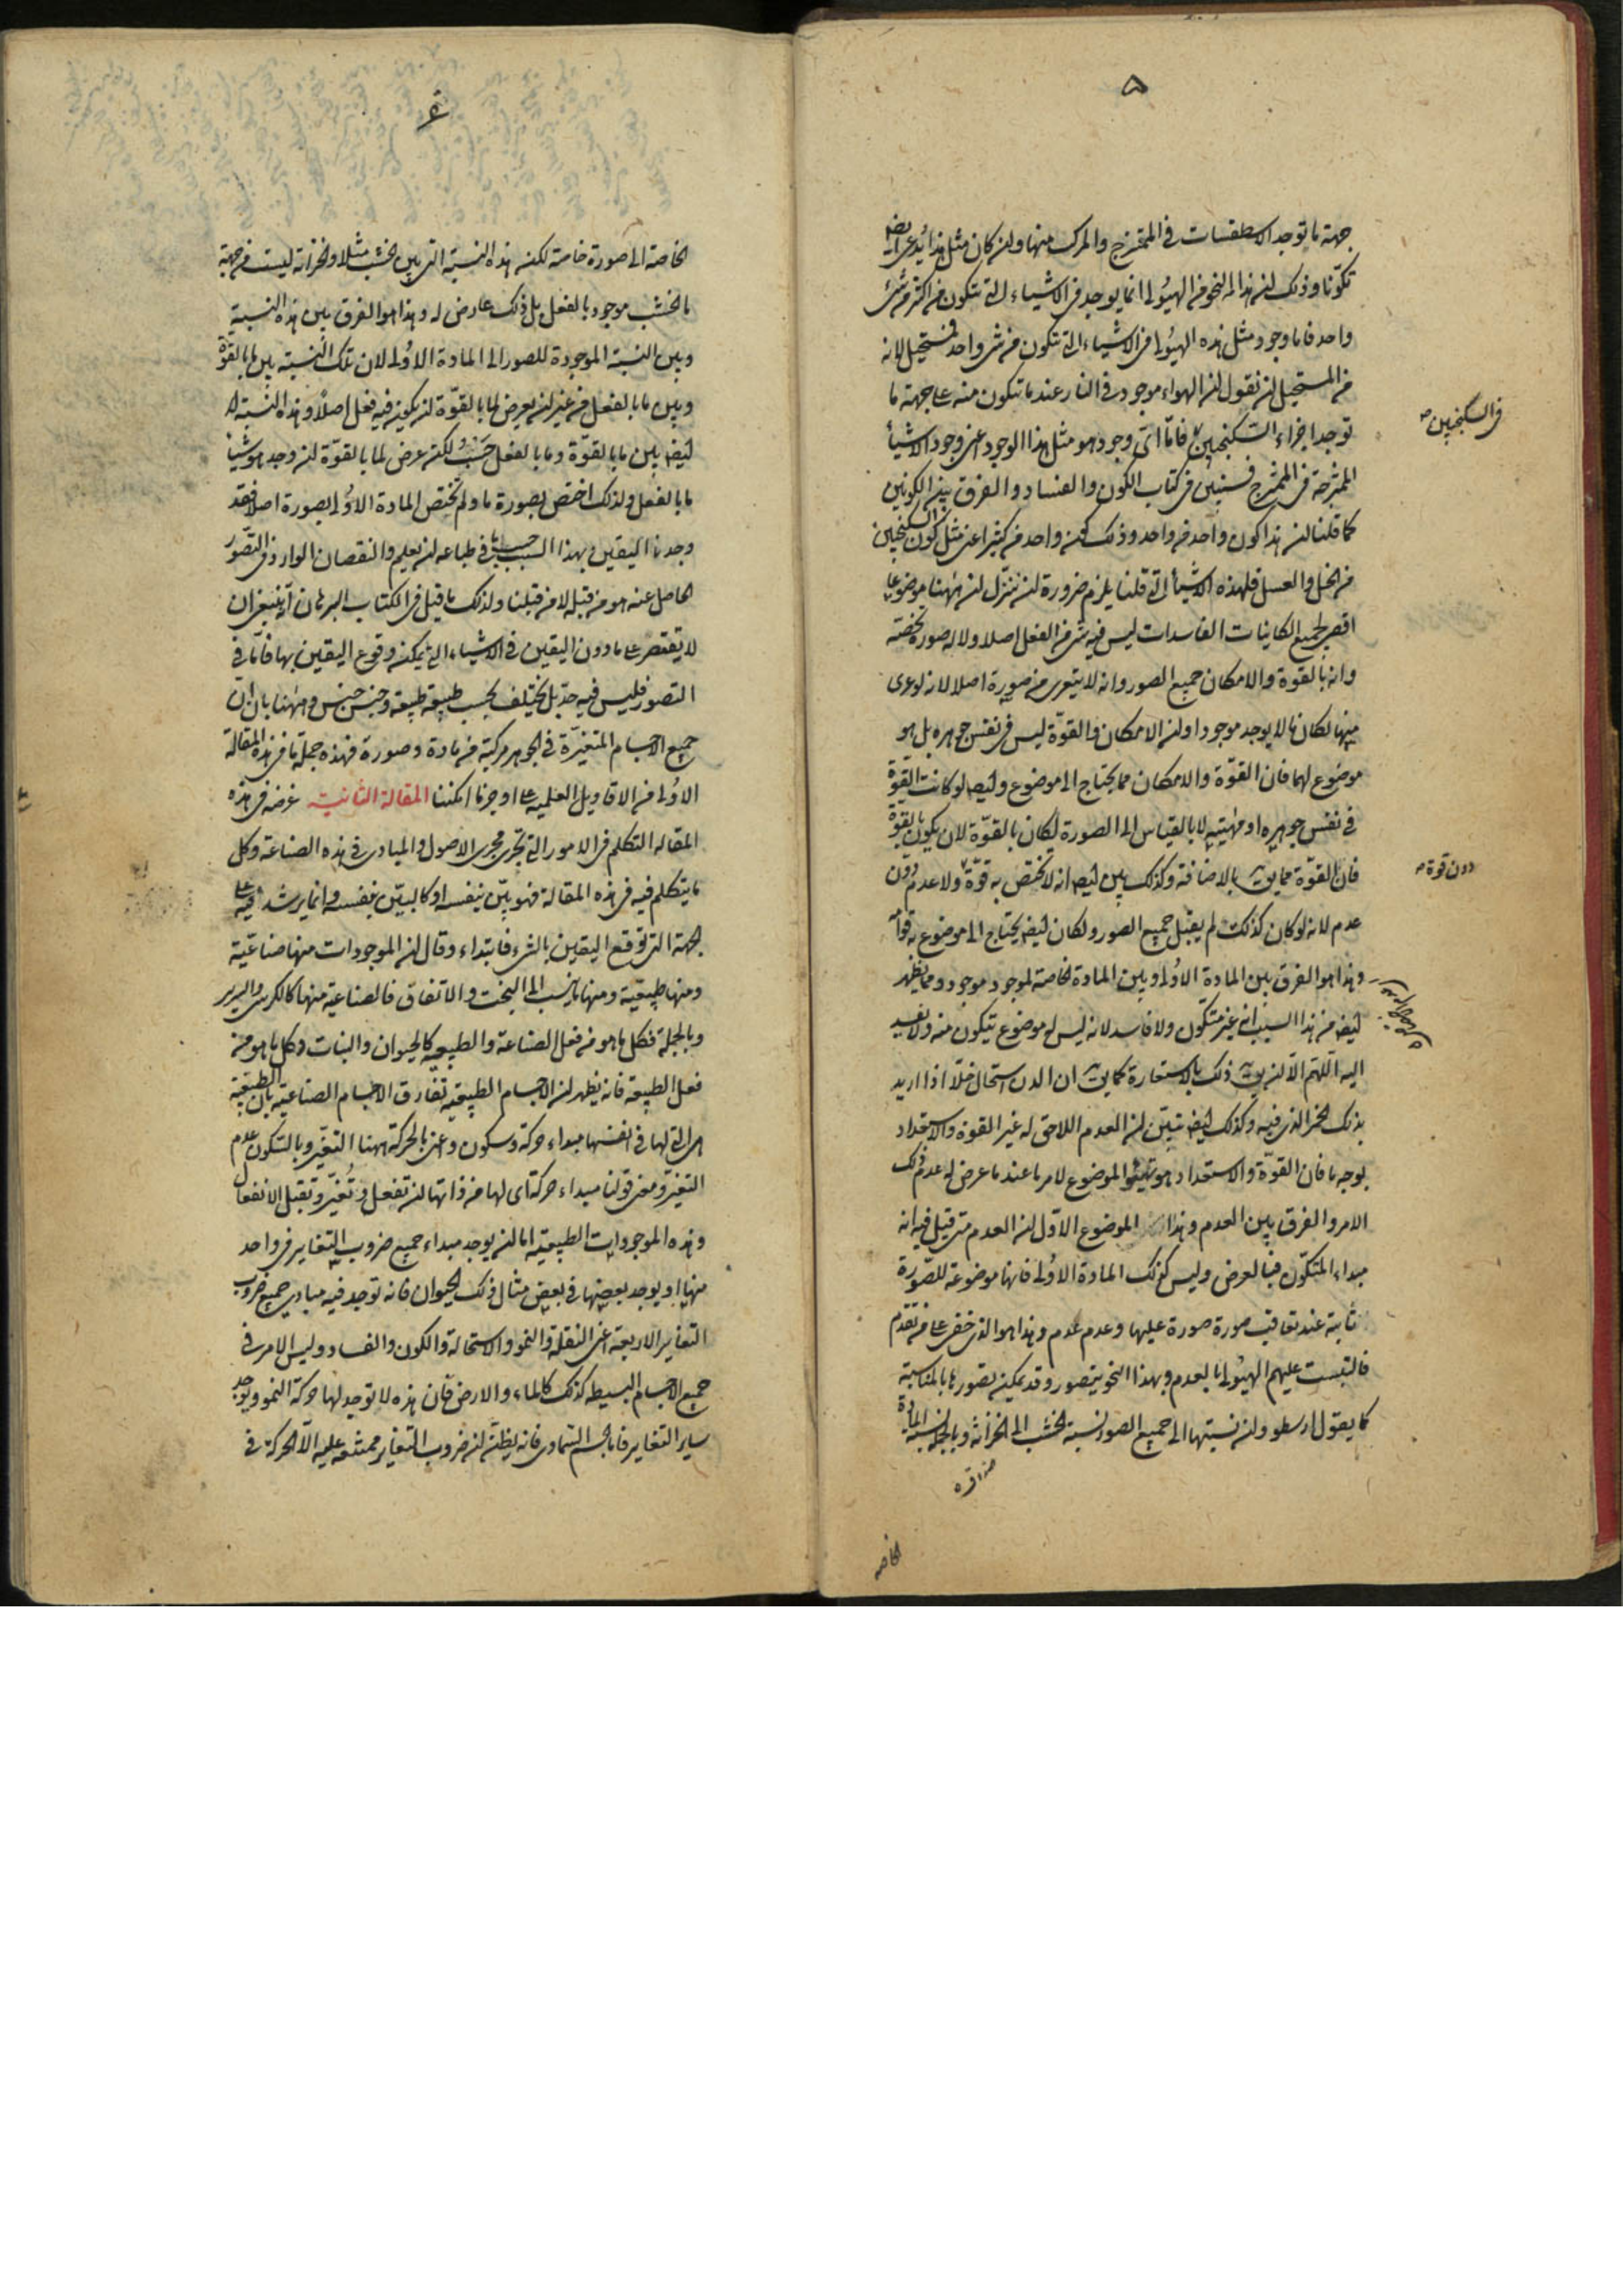 ٥
جهة ما توجد الاسطقسات فى الممتزج والمركب منها ولن كان مثل هذا يدعى ايضا
تكوّنا وذلك لن هذا النحو من الهيولى انما يوجد فى الاشياء التى تتكون من اكثر من شئ
واحد فاما وجود مثل هذه الهيولى فى الاشياء التى تتكون من شئ واحد فمستحيل لانه
من المستحيل لن نقول لن الهواء موجود فى النار عندما تتكون منه على جهة ما
توجد اجزاء السكنجبين فامّا اىّ وجود هو مثل هذا الوجود اعنى وجود الاشياء
الممتزجة فى الممتزج فسنبين فى كتاب الكون والفساد والفرق بين الكونين
كما قلنا لن هذا كون واحد من واحد وذلك كون واحد من كثير اعنى مثل كون السكنجبين
من الخل والعسل فلهذه الاشياء التى قلنا يلزم ضرورة لن ننزل لن ههنا موضوعا
اقصى لجميع الكاينات الفاسدات ليس فيه شئ من الفعل اصلا ولا له صورة تخصّه
وانه بالقوة والامكان جميع الصور وانه لا يتعرى من صورة اصلا لانه لو عرى
منها لكان ما لا يوجد موجودا ولن الامكان والقوّة ليس فى نفس جوهره بل هو
موضوع لهما فان القوّة والامكان مما يحتاج الى موضوع وايضا لو كانت القوّة
فى نفس جوهره او مهيته لا بالقياس الى الصورة لكان بالقوّة لان يكون بالقوة
فان القوّة مما يق بالاضافة وكذلك يبين ايضا انه لا تختص به قوّة ولا عدم دون
عدم لانه لو كان كذلك لم يقبل جميع الصور ولكان ايضا يحتاج الى موضوع به قوامه
وهذا هو الفرق بين المادة الاولى وبين المادة الخاصة لموجود موجود ومما يظهر
ايضا من هذا السبب انه غير متكون ولا فاسد لانه ليس له موضوع يتكون منه ولا يفسد
اليه اللهم الّا لن يق ذلك بالاستعارة كما يق ان الدن استحال خلّا اذا اريد
بذلك الخمر الذى فيه وكذلك ايضا تبيّن لن العدم اللاحق له غير القوة والاستعداد
بوجه ما فان القوّة والاستعداد هو تهيؤ الموضوع لامر ما عندما عرض له عدم ذلك
الامر والفرق بين العدم وهذا الموضوع الاوّل لن العدم متى قيل فيه انه
مبداء المتكوّن فبالعرض وليس كذلك المادة الاولى فانها موضوعة للصّورة
ثابتة عند تعاقب صورة صورة عليها وعدم عدم وهذا هو الذى خفى على من تقدم
فالتبست عليهم الهيولى بالعدم وبهذا النحو يتصور وقد يمكن تصورها بالمناسبة
كما يقول ارسطو ولن نسبتها الى جميع الصور نسبة الخشب الى الخزانة وبالجملة نسبة المادة
الخاصه
فى السكنجبين صح
دون قوة صح
٦
الخاصة الى صورة خاصة لكنه هذه النسبة التى بين الخشب مثلا والخزانة ليست من جهة
ما الخشب موجود بالفعل بل ذلك عارض له وهذا هو الفرق بين هذه النسبة
وبين النسبة الموجودة للصور الى المادة الاولى لان تلك النسبة بين ما بالقوّة
وبين ما بالفعل من غير لن يعرض لما بالقوّة لن يكون فيه فعل اصلا وهذه النسبة
ايضا بين ما بالقوّة وما بالفعل حَسْبُ لكنه عرض لما بالقوّة لن وجد هو شيئا
ما بالفعل ولذلك اختص بصورة ما ولم تختص المادة الاولى بصورة اصلا فقد
وجد هنا اليقين بهذا السبب حسب ما فى طباعه لن يعلم والنقصان الوارد فى التصوّر
الحاصل عنه هو من قبله لا من قبلنا ولذلك ما قيل فى الكتاب البرهان انه ينبغى ان
لا يقتصر على ما دون اليقين فى الاشياء التى يمكنه وقوع اليقين بها فامّا فى
التصور فليس فيه حدّ بل يختلف بحسب طبيعة طبيعة وجنس جنس وههنا بان ان
جميع الاجسام المتغيّرة فى الجوهر مركبة من مادة وصورة فهذه جملة ما فى هذه المقالة
الاولى من الاقاويل العلمية على اوجز ما امكننا المقالة الثانية غرضه فى هذه
المقاله التكلم فى الامور التى تجرى مجرى الاصول والمبادى فى هذه الصناعة وكل
ما يتكلم فيه فى هذه المقالة فهو بيّن بنفسه او كالبيّن بنفسه وانما يرشد فيه على
الجهة التى توقع اليقين بالشئ فابتداء وقال لن الموجودات منها صناعيّة
ومنها طبيعية ومنها ما ينسب الى البخت والاتفاق فالصناعية منها كالكرسى والسرير
وبالجملة فكل ما هو من فعل الصناعة والطبيعيه كالحيوان والنبات وكل ما هو من
فعل الطبيعة فانه يظهر لن الاجسام الطبيعيه تفارق الاجسام الصناعية بان الطبيعية
هى التى لها فى انفسها مبداء حركة وسكون واعنى بالحركة ههنا التغيّر وبالسكون عدم
التغيّر ومعنى قولنا مبداء حركة اى لها من ذاتها لن تفعل وتُغيّر وتقبل الانفعال
وهذه الموجودات الطبيعيه اما لن يوجد مبداء جميع ضروب التغاير فى واحد
منها او يوجد بعضها فى بعض مثال ذلك الحيوان فانه توجد فيه مبادى جميع ضروب
التغاير الاربعة اعنى النقلة والنمو والاستحالة والكون والفساد وليس الامر فى
جميع الاجسام البسيطه كذلك كالماء والارض فان هذه لا توجد لها حركة النمو ويوجد
ساير التغاير فاما الجسم السماوى فانه يظن لن ضروب التغاير ممتنعة عليه الّا الحركة فى